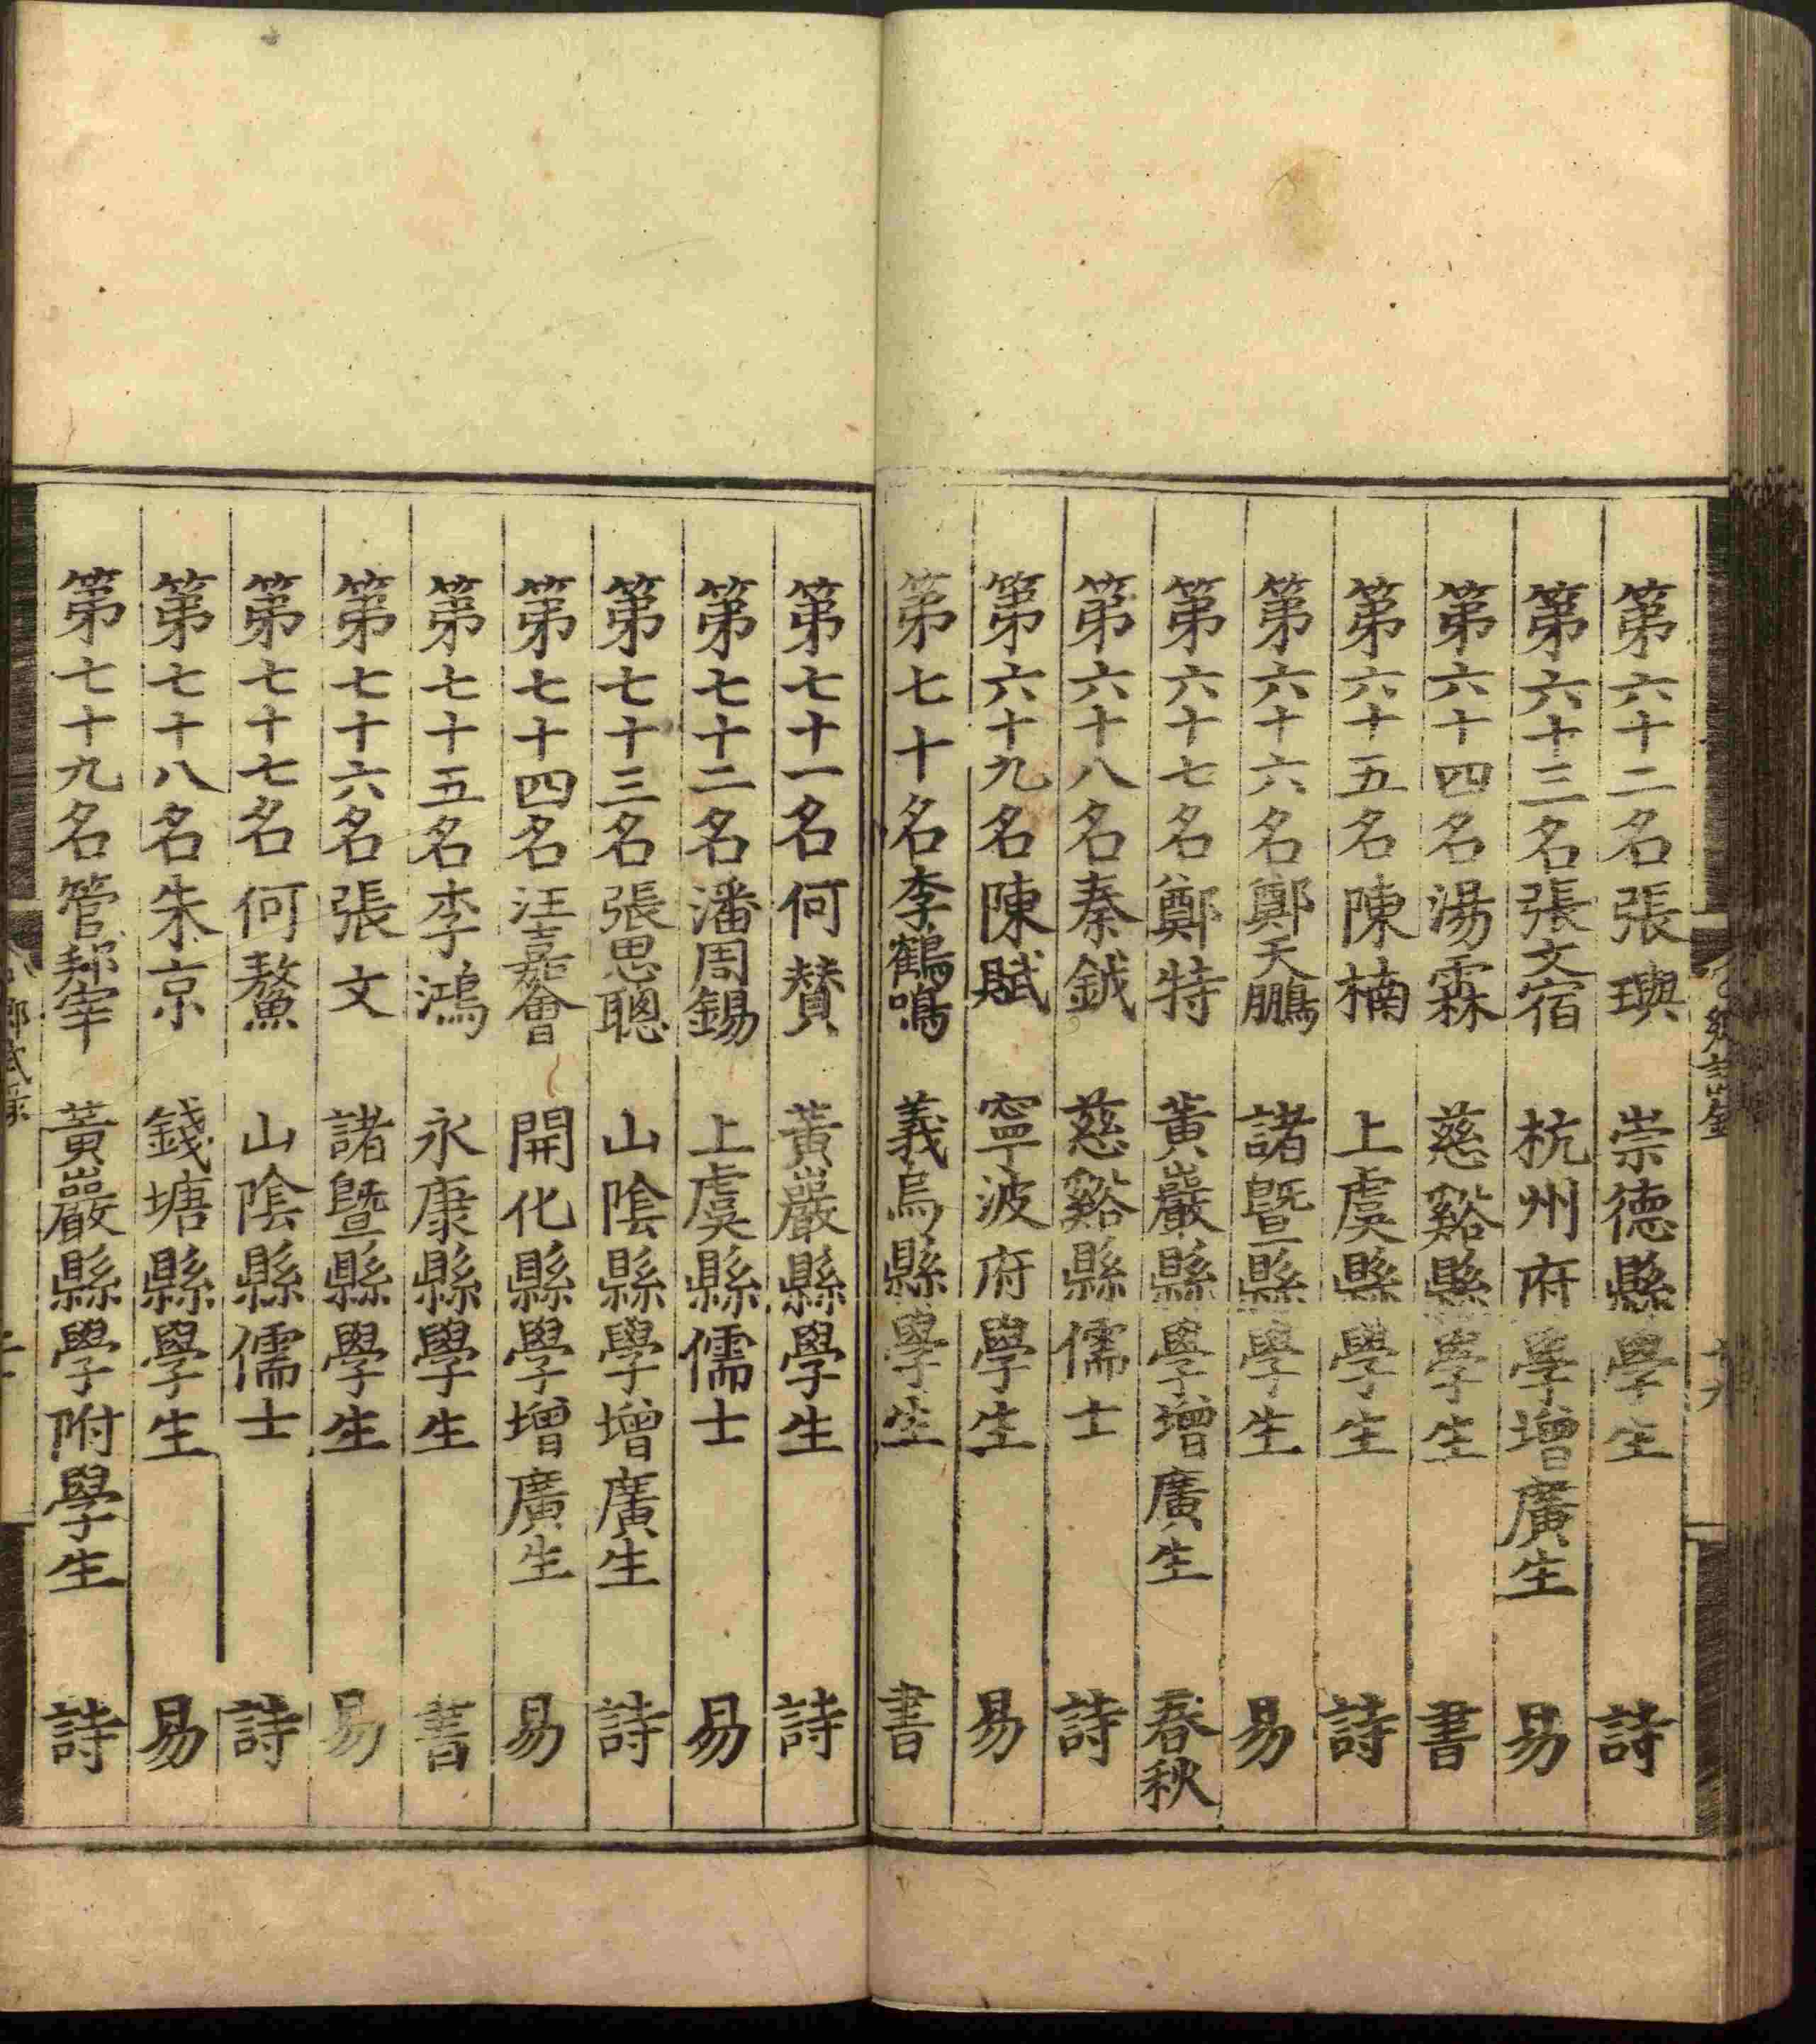 第六十二名張璵 崇德縣學生 詩
第六十三名張文宿 杭州府學增廣生 易
第六十四名湯霖 慈谿縣學生 書
第六十五名陳楠 上虞縣學生 詩
第六十六名鄭天鵬 諸暨縣學生 易
第六十七名鄭特 黃巖縣學增廣生 春秋
第六十八名秦鉞 慈谿縣儒士 詩
第六十九名陳賦 寧波府學生 易
第七十名李鶴鳴 義烏縣學生 書
第七十一名何贊 黃巖縣學生 詩
第七十二名潘周錫 上虞縣儒士 易
第七十三名張思聰 山陰縣學增廣生 詩
第七十四名汪嘉會 開化縣學增廣生 易
第七十五名李鴻 永康縣學生 書
第七十六名張文 諸暨縣學生 易
第七十七名何鰲 山陰縣儒士 詩
第七十八名朱京 錢塘縣學生 易
第七十九名管羣 黃巖縣學附學生 詩